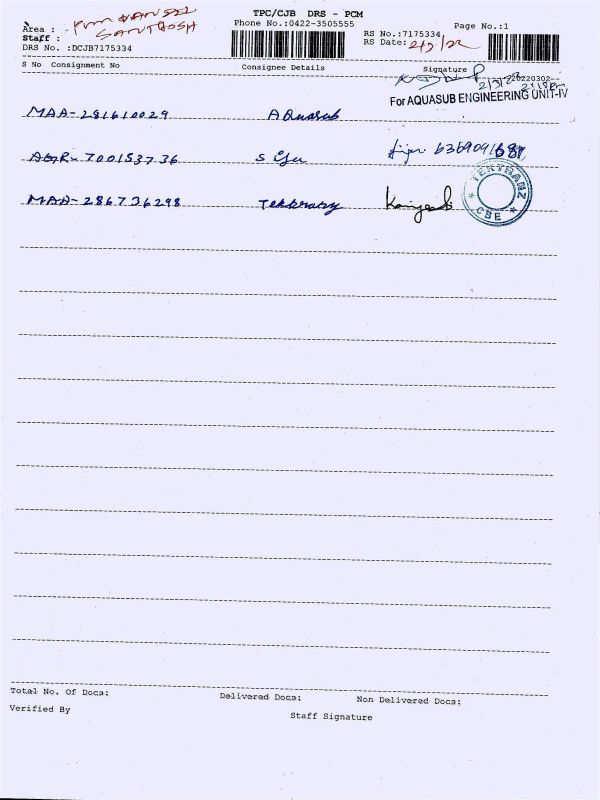 TPC/CJB DRS - PCM
Area : PCM VAN SEL
Phone No.:0422-3505555
Page No.:1
Staff : SANTHOSH
RS No.:7175334
DRS No. :DCJB7175334
RS Date: 2/3/22
S No Consignment No Consignee Details Signature
20220302
2/3/22
2:18pm
For AQUASUB ENGINEERING UNIT-IV
MAA-281610029 AQuasub
AGR-700153736 6369091687
MAA-286736298
TEKTRANZ
* CBE *
Total No. Of Docs: Delivered Docs: Non Delivered Docs:
Verified By Staff Signature